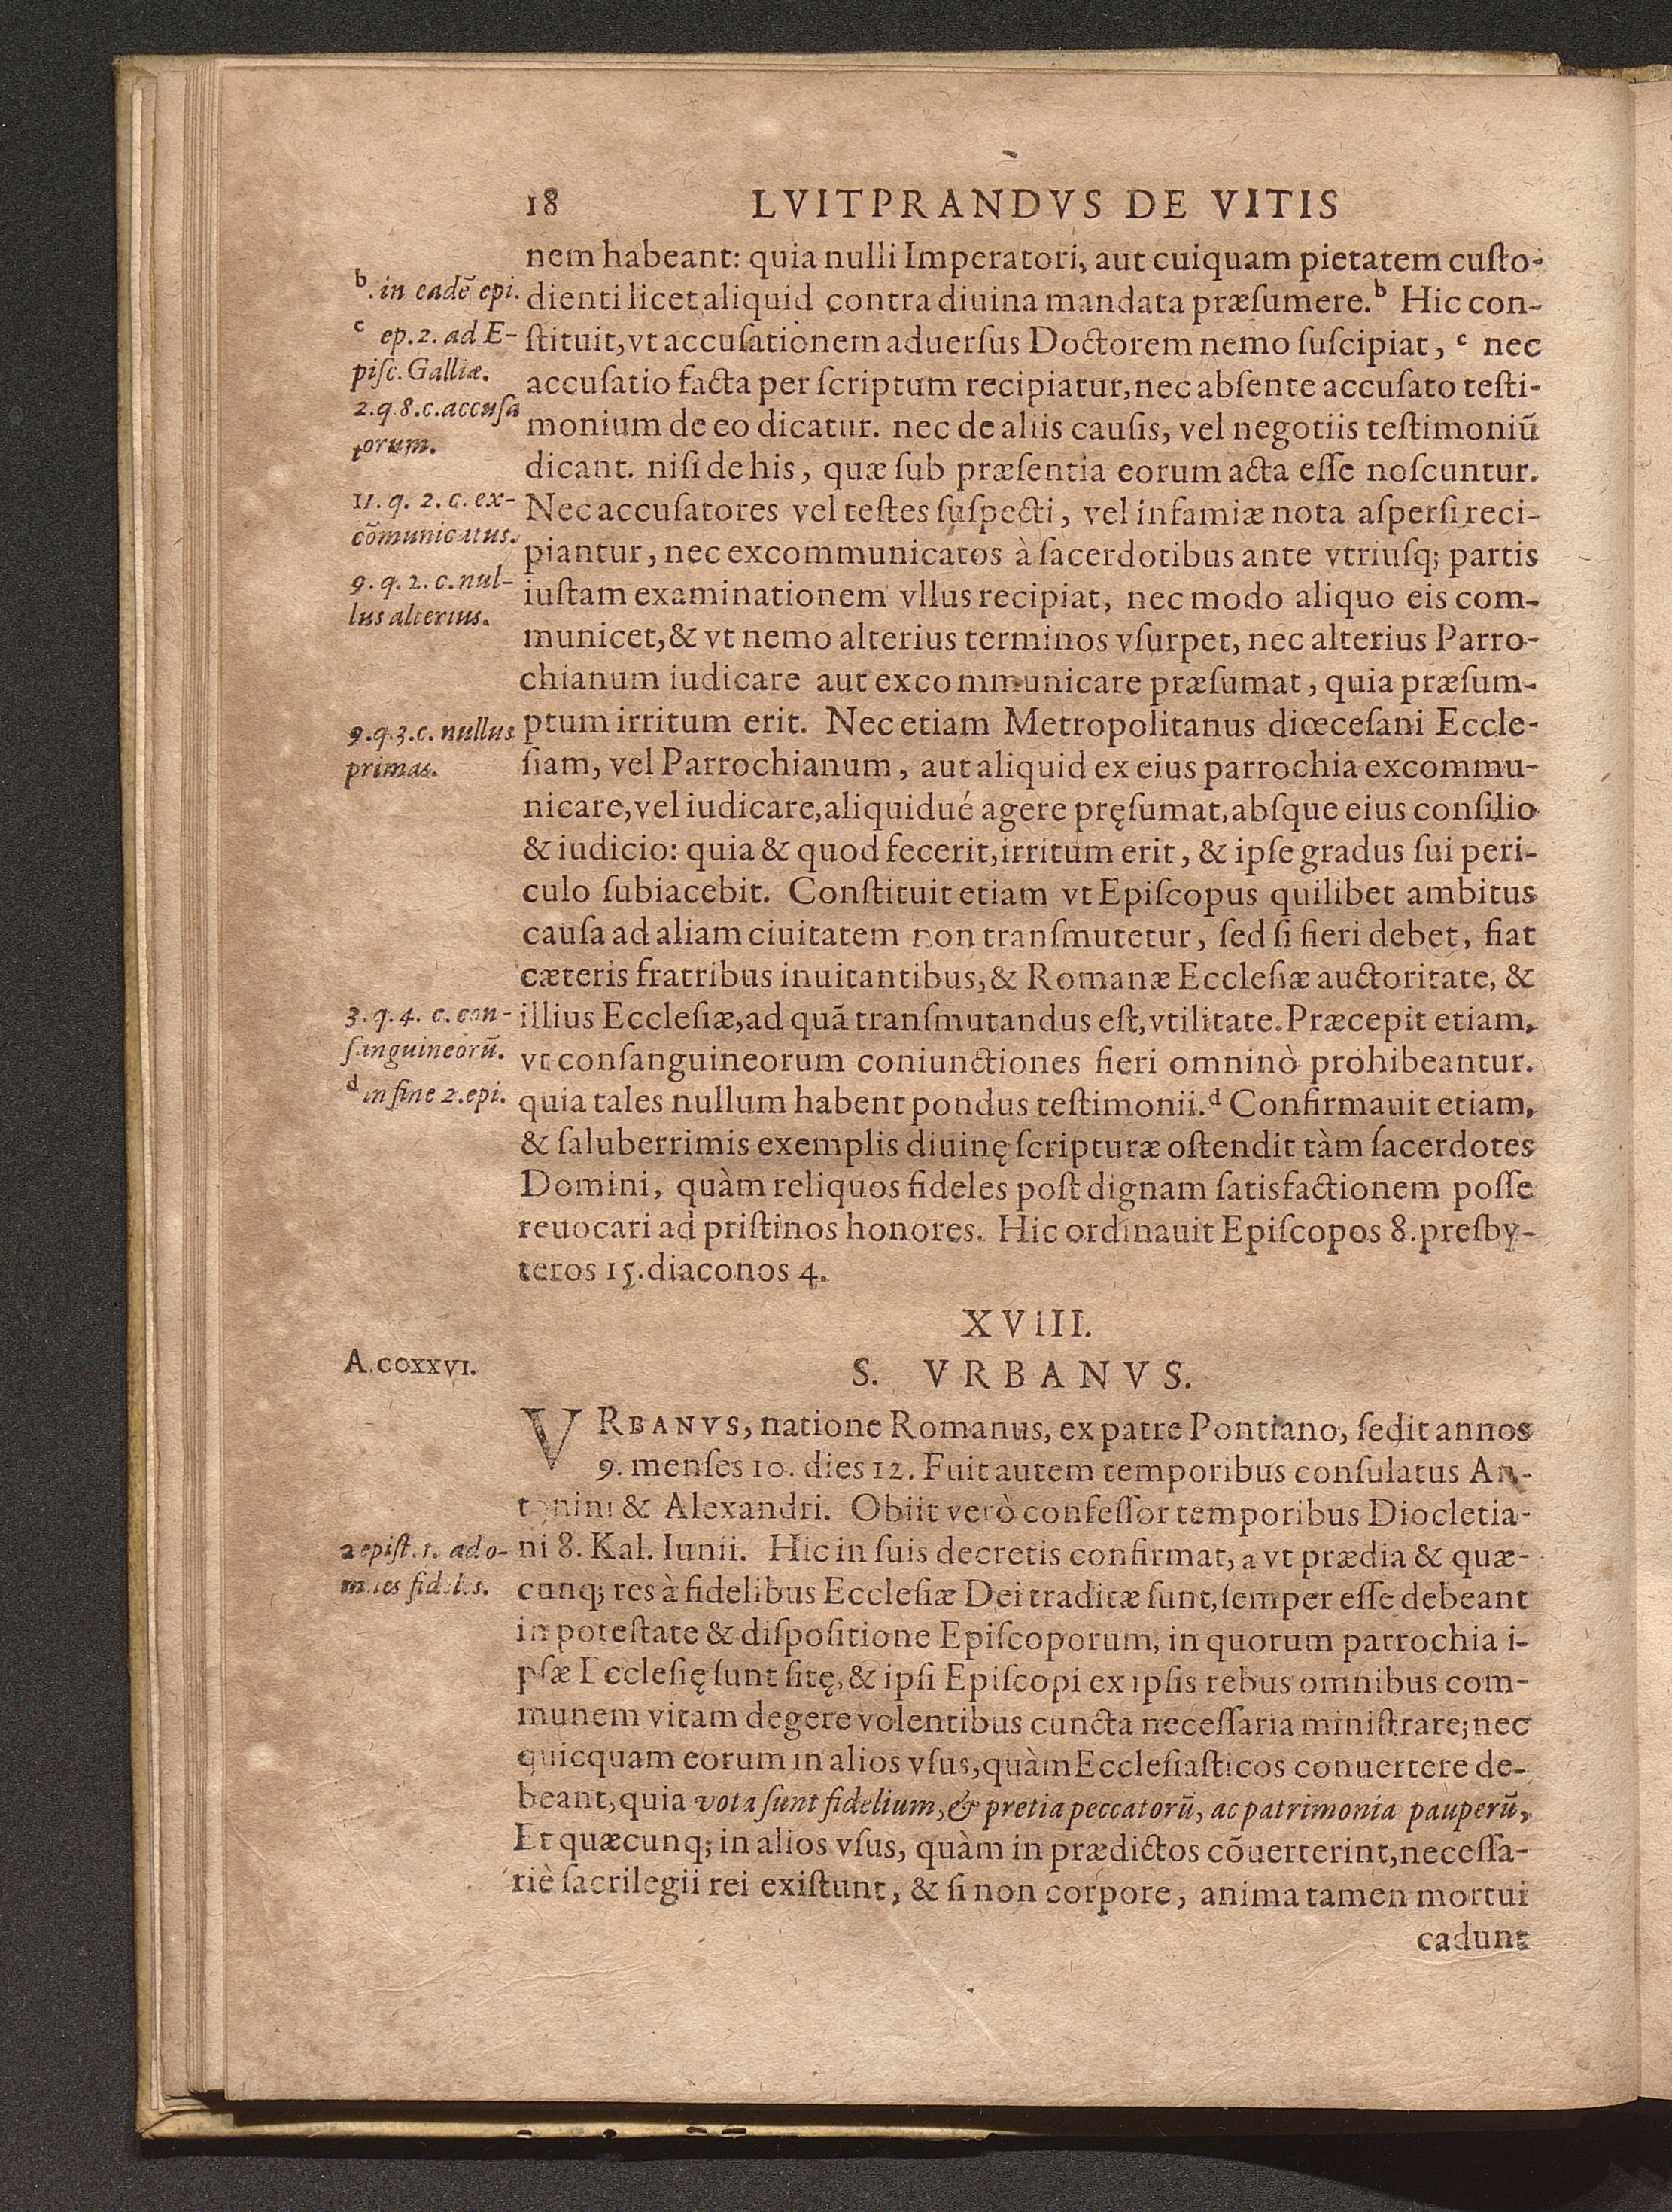 18 LVITPRANDVS DE VITIS
nem habeant: quia nulli Imperatori, aut cuiquam pietatem cuſto-
dienti licet aliquid contra diuina mandata præſumere.ᵇ Hic con-
ſtituit, vt accuſationem aduerſus Doctorem nemo ſuſcipiat, ᶜ nec
accuſatio facta per ſcriptum recipiatur, nec abſente accuſato teſti-
monium de eo dicatur. nec de aliis cauſis, vel negotiis teſtimoniũ
dicant. niſi de his, quæ ſub præſentia eorum acta eſſe noſcuntur.
Nec accuſatores vel teſtes ſuſpecti, vel infamiæ nota aſperſi reci-
piantur, nec excommunicatos à ſacerdotibus ante vtriuſq; partis
iuſtam examinationem vllus recipiat, nec modo aliquo eis com-
municet, & vt nemo alterius terminos vſurpet, nec alterius Parro-
chianum iudicare aut excommunicare præſumat, quia præſum-
ptum irritum erit. Nec etiam Metropolitanus diœceſani Eccle-
ſiam, vel Parrochianum, aut aliquid ex eius parrochia excommu-
nicare, vel iudicare, aliquidué agere pręſumat, abſque eius conſilio
& iudicio: quia & quod fecerit, irritum erit, & ipſe gradus ſui peri-
culo ſubiacebit. Conſtituit etiam vt Epiſcopus quilibet ambitus
cauſa ad aliam ciuitatem non tranſmutetur, ſed ſi fieri debet, fiat
cæteris fratribus inuitantibus, & Romanæ Eccleſiæ auctoritate, &
illius Eccleſiæ, ad quã tranſmutandus eſt, vtilitate. Præcepit etiam,
vt conſanguineorum coniunctiones fieri omninò prohibeantur.
quia tales nullum habent pondus teſtimonii.ᵈ Confirmauit etiam,
& ſaluberrimis exemplis diuinę ſcripturæ oſtendit tàm ſacerdotes
Domini, quàm reliquos fideles poſt dignam ſatisfactionem poſſe
reuocari ad priſtinos honores. Hic ordinauit Epiſcopos 8. preſby-
teros 15. diaconos 4.
ᵇ. in eadẽ epi.
ᶜ ep. 2. ad E-
piſc. Galliæ.
2. q. 8. c. accuſa
torum.
11. q. 2. c. ex-
cõmunicatus.
9. q. 2. c. nul-
lus alterius.
9. q. 3. c. nullus
primas.
3. q. 4. c. con-
ſanguineorũ.
ᵈ in fine 2. epi.
XViII.
A. COXXVI.
S. VRBANVS.
VRBANVS, natione Romanus, ex patre Pontiano, ſedit annos
9. menſes 10. dies 12. Fuit autem temporibus conſulatus An-
tonini & Alexandri. Obiit verò confeſſor temporibus Diocletia-
ni 8. Kal. Iunii. Hic in ſuis decretis confirmat, a vt prædia & quæ-
cunq; res à fidelibus Eccleſiæ Dei traditæ ſunt, ſemper eſſe debeant
in poteſtate & diſpoſitione Epiſcoporum, in quorum parrochia i-
pſæ Eccleſię ſunt ſitę, & ipſi Epiſcopi ex ipſis rebus omnibus com-
munem vitam degere volentibus cuncta neceſſaria miniſtrare; nec
quicquam eorum in alios vſus, quàm Eccleſiaſticos conuertere de-
beant, quia vota ſunt fidelium, & pretia peccatorũ, ac patrimonia pauperũ,
Et quæcunq; in alios vſus, quàm in prædictos cõuerterint, neceſſa-
riè ſacrilegii rei exiſtunt, & ſi non corpore, anima tamen mortui
cadunt
a epiſt. 1. ad o-
mnes fideles.